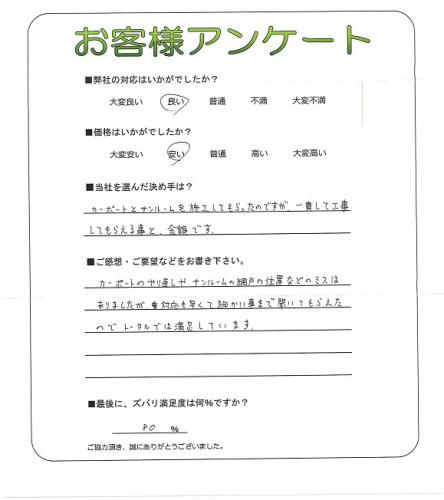 お客様アンケート
■弊社の対応はいかがでしたか？
大変良い 良い 普通 不満 大変不満
■価格はいかがでしたか？
大変安い 安い 普通 高い 大変高い
■当社を選んだ決め手は？
カーポートとサンルームを施工してもらったのですが、一貫して工事
してもらえる事と、金額です。
■ご感想・ご要望などをお書き下さい。
カーポートのやり直しや サンルームの網戸の位置などのミスは
ありましたが、対応も早くて細かい事まで聞いてもらえた
ので トータルでは満足しています。
■最後に、ズバリ満足度は何％ですか？
80 %
ご協力頂き、誠にありがとうございました。